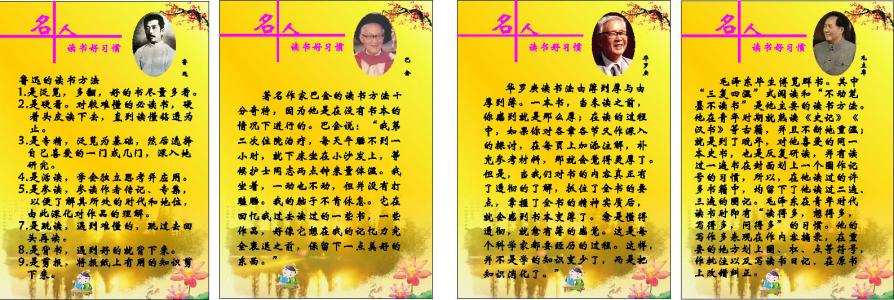 名人
读书好习惯
鲁迅
鲁迅的读书方法
1.是泛览，多翻，好的书尽量多看。
2.是硬看。对较难懂的必读书，硬
着头皮读下去，直到读懂钻透为
止。
3.是专精，泛览为基础，然后选择
自己喜爱的一门或几门，深入地
研究。
4.是活读，学会独立思考并应用。
5.是参读，参读作者传记、专集，
以便了解其所处的时代和地位，
由此深化对作品的理解。
7.是跳读，遇到难懂的，跳过去回
头再读。
8.是背书，遇到好的就背下来。
9.是剪报，将报纸上有用的知识剪
下来。
名人
读书好习惯
巴金
著名作家巴金的读书方法十
分奇特，因为他是在没有书本的
情况下进行的。巴金说：“我第
二次住院治疗，每天午睡不到一
小时，就下床坐在小沙发上，等
候护士同志两点钟来量体温。我
坐着，一动也不动，但并没有打
瞌睡。我的脑子不肯休息。它在
回忆我过去读过的一些书，一些
作品，好像它想在我的记忆力完
全衰退之前，保留下一点美好的
东西。”
名人
读书好习惯
华罗庚
华罗庚读书法由薄到厚与由
厚到薄。一本书，当未读之前，
你感到就是那么厚；在读的过程
中，如果你对各章各节又作深入
的探讨，在每页上加添注解，补
充参考材料，那就会觉得更厚了。
但是，当我们对书的内容真正有
了透彻的了解，抓住了全书的要
点，掌握了全书的精神实质后，
就会感到书本变薄了。愈是懂得
透彻，就愈有薄的感觉。这是每
个科学家都要经历的过程。这样，
并不是学的知识变少了，而是把
知识消化了。”
名人
读书好习惯
毛主席
毛泽东毕生博览群书。其中
“三复四温”式阅读和“不动笔
墨不读书”是他主要的读书方法。
他在青年时期就熟读《史记》《
汉书》等古籍，并且不断地重温；
就是到了晚年，对他喜爱的同一
本史书，也是反复研读，并有读
过一遍书在封面划上一个圈作记
号的习惯，所以，在他读过的许
多书籍中，均留下了他读过二遍、
三遍的圈记。毛泽东在青年时代
读书时即有“读得多，想得多，
写得多，问得多”的习惯。他的
写作多表现在作内容摘录，在重
要的地方划上圈、杠、点等符号，
作批注以及写读书日记、在原书
上改错纠正。